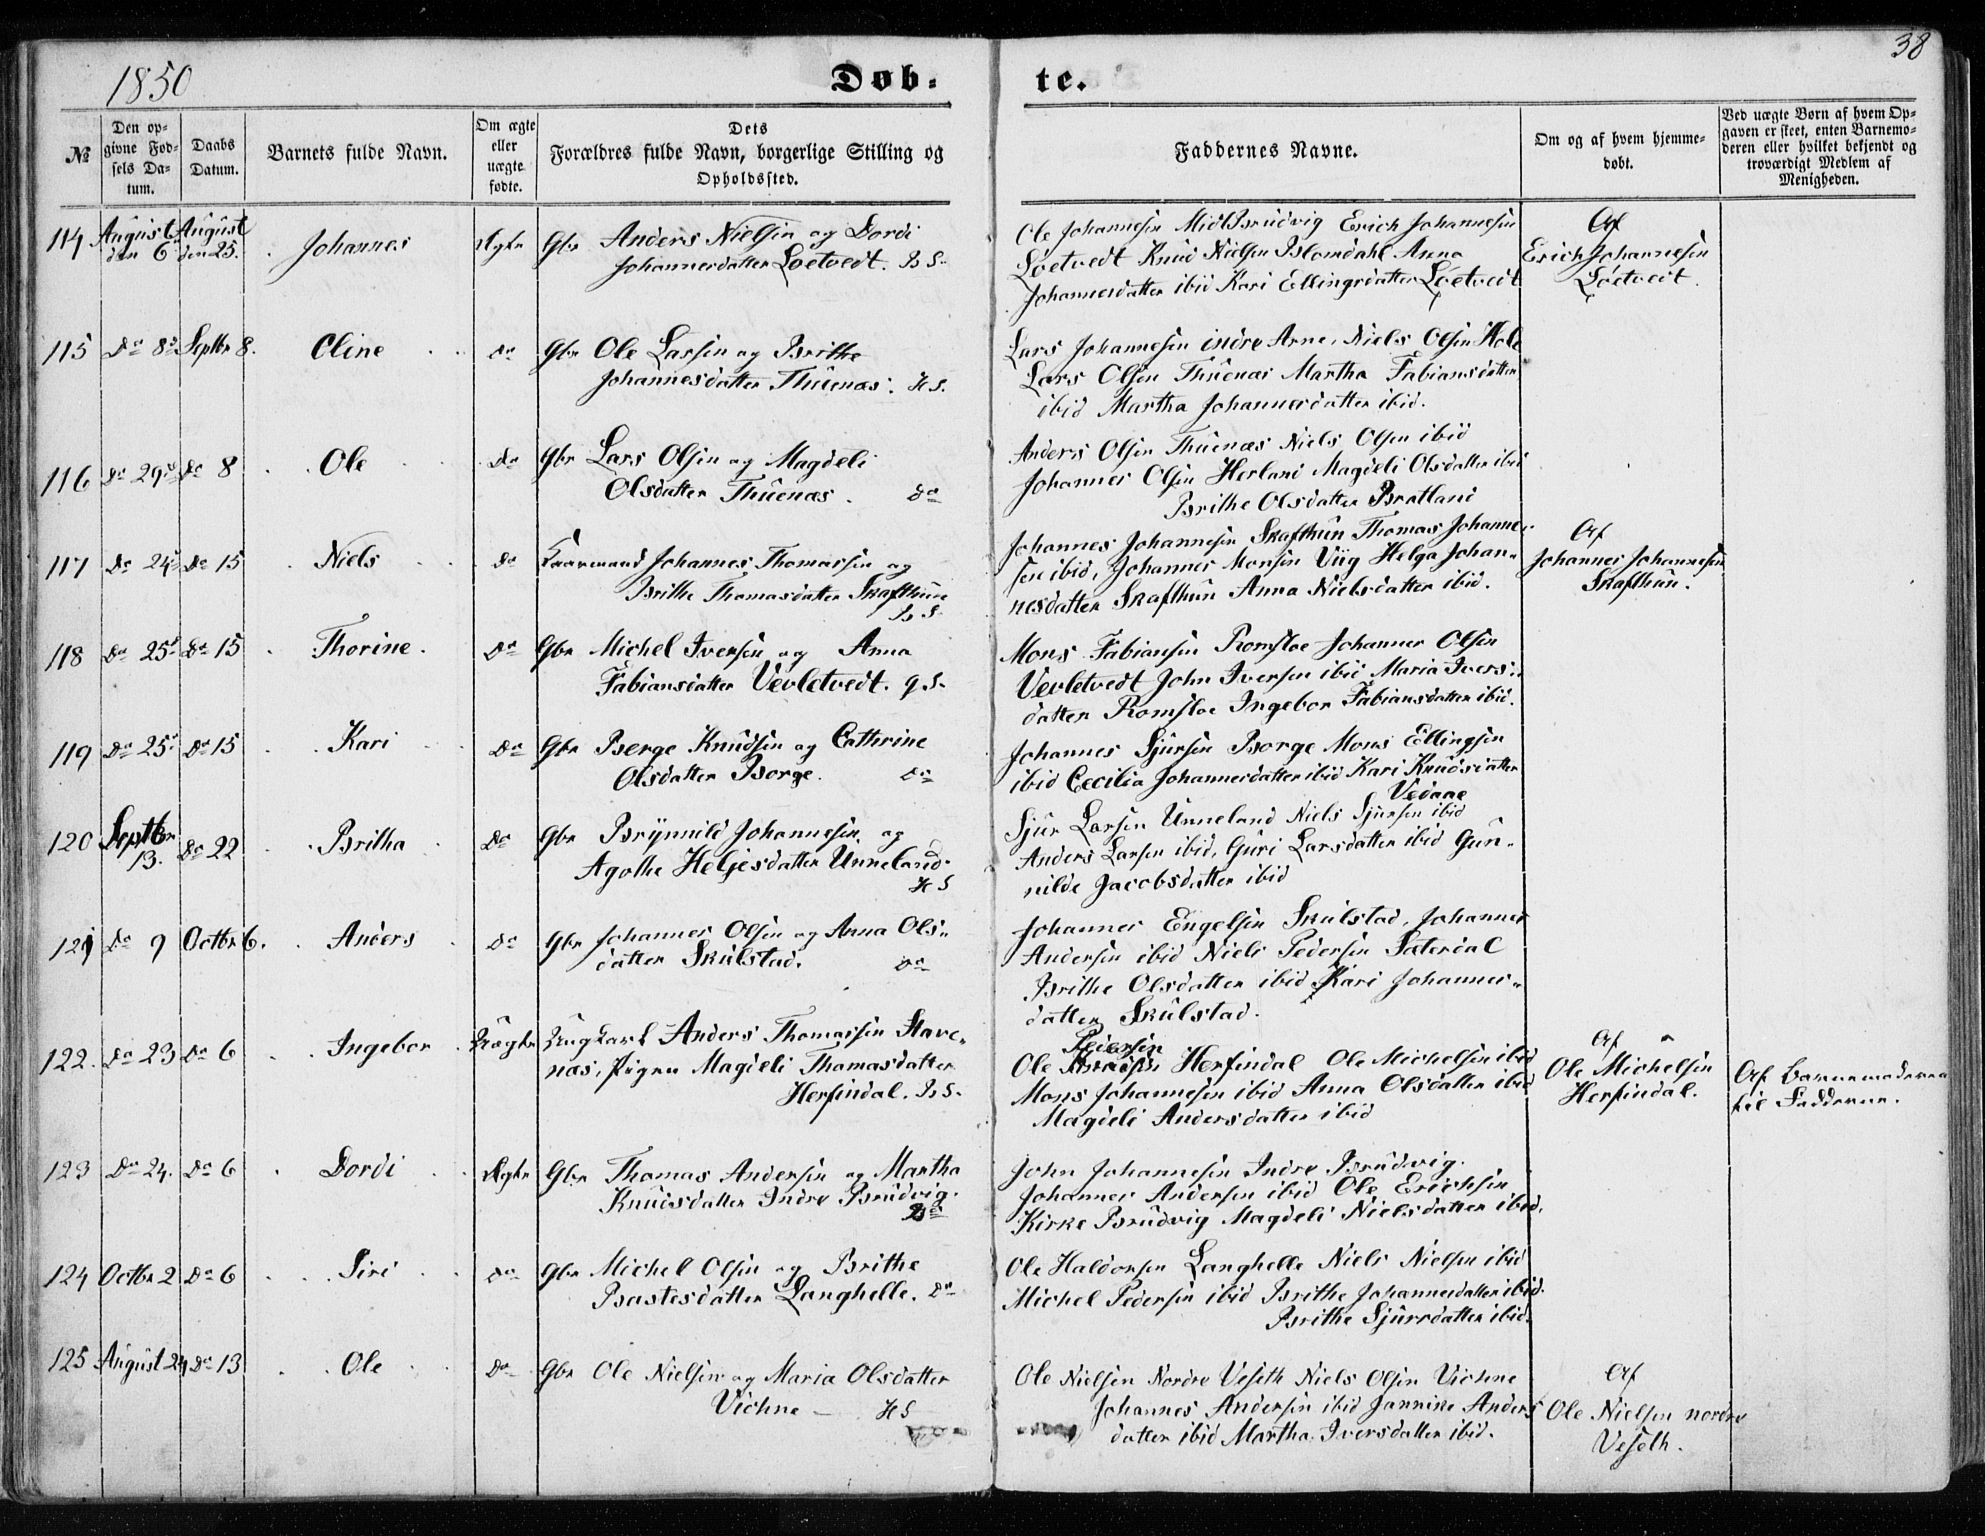 1850
Døb-
te.
38
№
Den op-
givne Fød-
sels Da-
tum.
Daabs
Datum.
Barnets fulde Navn.
Om ægte
eller
uægte
fødte.
Dets
Forældres fulde Navn, borgerlige Stilling og
Opholdssted.
Faddernes Navne.
Om og af hvem hjemme-
døbt.
Ved uægte Børn af hvem Op-
gaven er skeet, enten Barnemo-
deren eller hvilket bekjendt og
troværdigt Medlem af
Menigheden.
114 August August Johannes Ægte Gbr Anders Nielsen og Dordi
den 6te den 25.
Johannesdatter Løetvedt. B S.
Ole Johannesen MidtBrudvig Erich Johannesen
Løetvedt Knud Nielsen Blomdahl Anna
Johannesdatter ibid Kari Ellingsdatter Løetvedt
Af
Erich Johannesen
Løetvedt.
115 Do 8de Septbr 8. Oline do Gbr Ole Larsen og Brithe
Johannesdatter Thuenæs. H S.
Lars Johannesen indre Arne, Niels Olsen Hole
Lars Olsen Thuenæs Martha Fabiansdatter
ibid Martha Johannesdatter ibid.
116 Do 29de Do 8 Ole Do Gbr Lars Olsen og Magdeli
Olsdatter Thuenæs. do
Anders Olsen Thuenæs Niels Olsen ibid
Johannes Olsen Herland Magdeli Olsdatter ibid
Brithe Olsdatter Bratland
117 Do 24de Do 15 Niels Do Huusmand Johannes Thomassen og
Brithe Thomasdatter Skafthun
B S.
Johannes Johannesen Skafthun Thomas Johanne-
sen ibid, Johannes Monsen Viig Helga Johan-
nesdatter Skafthun Anna Nielsdatter ibid.
Af
Johannes Johannesen
Skafthun.
118 Do 25de Do 15 Thorine. Do Gbr Michel Iversen og Anna
Fabiansdatter Vevletvedt. g S.
Mons Fabiansen Romsloe Johannes Olsen
Vevletvedt John Iversen ibid Maria Ivers-
datter Romsloe Ingebor Fabiansdatter ibid.
119 Do 25de Do 15 Kari Do Gbr Berge Knudsen og Cathrine
Olsdatter Borge. do
Johannes Sjursen Borge Mons Ellingsen
ibid Cecilia Johannesdatter ibid Kari Knudsdatter
Vedaae
120 Septbr 13. Do 22 Britha Do Gbr Brynnild Johannesen og
Agothe Heljesdatter Unneland.
H S
Sjur Larsen Unneland Niels Sjursen ibid
Anders Larsen ibid, Guri Larsdatter ibid Gun-
nilde Jacobsdatter ibid
121 Do 9 Octbr 6. Anders Do Gbr Johannes Olsen og Anna Ols-
datter Skulstad. do
Johannes Engelsen Skulstad, Johannes
Andersen ibid Niels Pedersen Saterdal
Brithe Olsdatter ibid Kari Johannes-
datter Skulstad.
122. Do 23 Do 6 Ingebor Uægte Ungkarl Anders Thomassen Stave-
næs, Pigen Magdeli Thomasdatter
Herfindal. B S.
Pedersen
Ole Herfindal Ole Michelsen ibid
Mons Johannesen ibid Anna Olsdatter ibid
Magdeli Andersdatter ibid
Af
Ole Michelsen
Herfindal.
Af Barnemoderen
til Fadderne.
123 Do 24. Do 6 Dordi Ægte Gbr Thomas Andersen og Martha
Knudsdatter Indre Brudvig.
Do
John Johannesen Indre Brudvig.
Johannes Andersen ibid Ole Erichsen
Kirke Brudvig Magdeli Nielsdatter ibid.
124 Octbr 2 Do 6 Siri do Gbr Michel Olsen og Brithe
Bastesdatter Langhelle. Do
Ole Haldorsen Langhelle Niels Nielsen ibid
Michel Pedersen ibid Brithe Johannesdatter ibid.
Brithe Sjursdatter ibid.
125 August 24 Do 13 Ole Do Gbr Ole Nielsen og Maria Olsdatter
Vichne — H S
Ole Nielsen Nordre Veseth Niels Olsen Vichne
Johannes Andersen ibid Jannike Anders
datter ibid Martha Iversdatter ibid.
Af
Ole Nielsen nordre
Veseth.